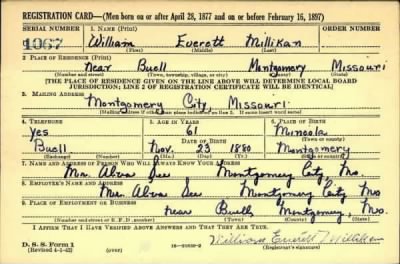 REGISTRATION CARD—(Men born on or after April 28, 1877 and on or before February 16, 1897)
SERIAL NUMBER 1. NAME (Print) ORDER NUMBER
1067 William Everett Millikan
(First) (Middle) (Last)
2. PLACE OF RESIDENCE (Print)
Near Buell Montgomery Missouri
(Number and street) (Town, township, village, or city) (County) (State)
[THE PLACE OF RESIDENCE GIVEN ON THE LINE ABOVE WILL DETERMINE LOCAL BOARD
JURISDICTION; LINE 2 OF REGISTRATION CERTIFICATE WILL BE IDENTICAL]
3. MAILING ADDRESS
Montgomery City, Missouri
[Mailing address if other than place indicated on line 2. If same insert word same]
4. TELEPHONE 5. AGE IN YEARS 6. PLACE OF BIRTH
Yes 61 Mineola
DATE OF BIRTH (Town or county)
Buell Nov. 23 1880 Montgomery
(Exchange) (Number) (Mo.) (Day) (Yr.) (State or country)
7. NAME AND ADDRESS OF PERSON WHO WILL ALWAYS KNOW YOUR ADDRESS
Mrs. Alva See Montgomery City, Mo.
8. EMPLOYER'S NAME AND ADDRESS
Mrs. Alva See Montgomery City, Mo
9. PLACE OF EMPLOYMENT OR BUSINESS
near Buell, Montgomery, Mo.
(Number and street or R. F. D. number) (Town) (County) (State)
I AFFIRM THAT I HAVE VERIFIED ABOVE ANSWERS AND THAT THEY ARE TRUE.
D. S. S. Form 1
(Revised 4-1-42) (over) William Everett Millikan
(Registrant's signature)